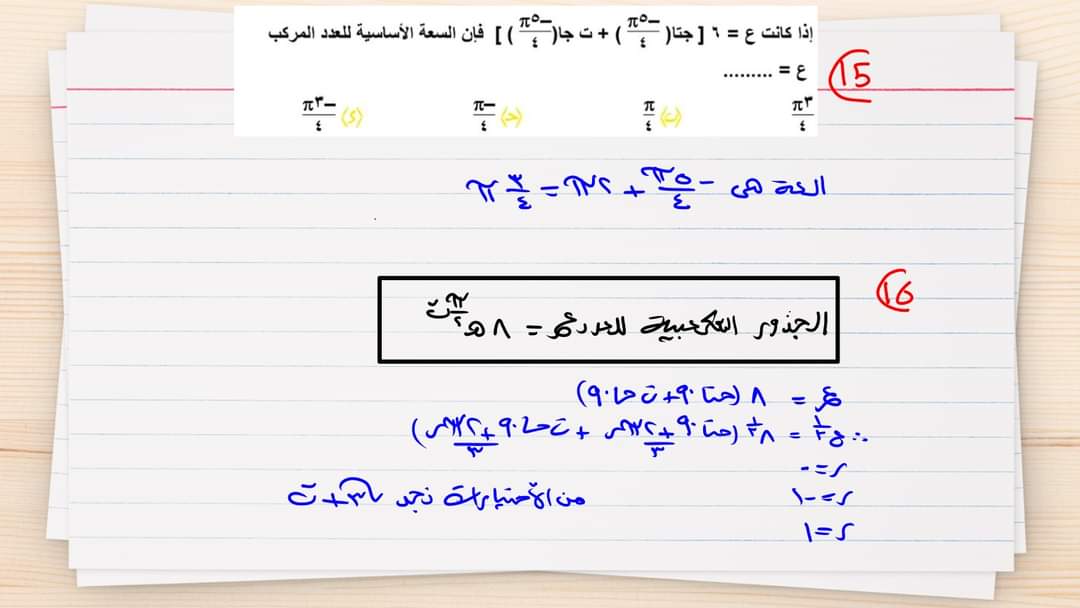 إذا كانت ع = ٦ [ جتا( −٥π/٤ ) + ت جا( −٥π/٤ ) ] فإن السعة الأساسية للعدد المركب
ع = .........
15
٣π/٤ (ب) π/٤ (ج) −π/٤ (د) −٣π/٤
السعة هى −٥π/٤ + ٢π = ٣/٤ π
16
الجذور التكعيبية للعدد ع = ٨ هـ^(π/٢ ت)
ع = ٨ (حتا ٩٠ + ت حا ٩٠)
∴ ع^(١/٣) = ٨^(١/٣) (حتا (٩٠ + ٢πر)/٣ + ت حا (٩٠ + ٢πر)/٣)
ر = ٠
ر = -١
من الأختيارات نجد √٣ + ت
ر = ١